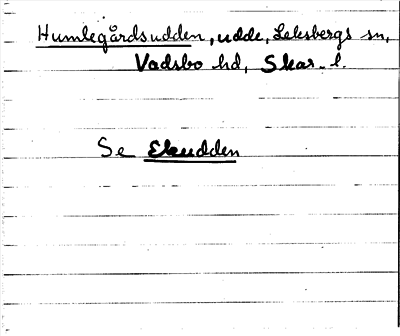 Humlegårdsudden, udde, Leksbergs sn,
Vadsbo hd, Skar. l.
Se Ekudden